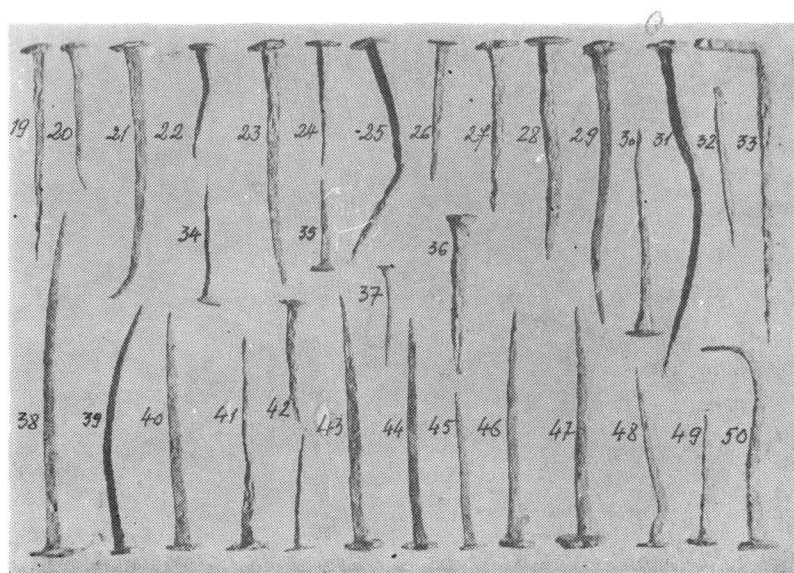 19 20 21 22 23 24 25 26 27 28 29 30 31 32 33
34 35 36
37
38 39 40 41 42 43 44 45 46 47 48 49 50